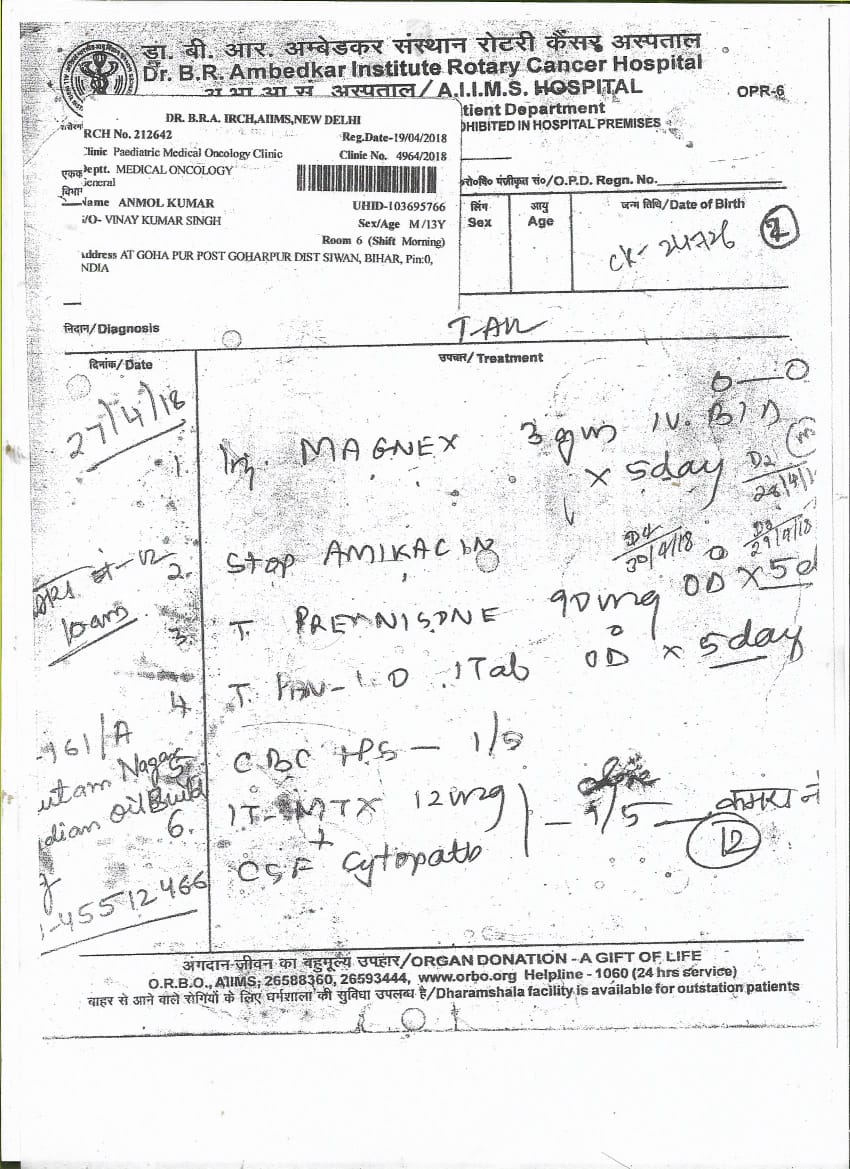 डा. बी. आर. अम्बेडकर संस्थान रोटरी कैंसर अस्पताल
Dr. B.R. Ambedkar Institute Rotary Cancer Hospital
अस्पताल/A.I.I.M.S. HOSPITAL
OPR-6
tient Department
HIBITED IN HOSPITAL PREMISES
DR. B.R.A. IRCH,AIIMS,NEW DELHI
RCH No. 212642 Reg.Date-19/04/2018
Clinic Paediatric Medical Oncology Clinic Clinic No. 4964/2018
एकक Deptt. MEDICAL ONCOLOGY
विभाग General
Name ANMOL KUMAR UHID-103695766
S/O- VINAY KUMAR SINGH Sex/Age M/13Y
Room 6 (Shift Morning)
Address AT GOHA PUR POST GOHARPUR DIST SIWAN, BIHAR, Pin:0,
NDIA
पंजीकृत सं०/O.P.D. Regn. No.
लिंग आयु जन्म तिथि/Date of Birth
Sex Age
CK- 24726
2
निदान/Diagnosis
दिनांक/Date उपचार/Treatment
27/4/18
1. Inj. MAGNEX 3 gm IV. BID
x 5 day
D2
28/4/1
D4
30/4/18
D3
29/4/18
2. Stop AMIKACIN
3. T. PREDNISONE 90mg OD x 5d
4. T. PAN-40 1Tab OD x 5 day
-961/A
utam Nagar
dian Oil Build
5 CBC +PS - 1/5
6. IT-MTX 12mg
+
CSF Cytopath
- 1/5 -
12
-45512466
अंगदान-जीवन का बहुमूल्य उपहार/ORGAN DONATION - A GIFT OF LIFE
O.R.B.O., AIIMS, 26588360, 26593444, www.orbo.org Helpline - 1060 (24 hrs service)
बाहर से आने वाले रोगियों के लिए धर्मशाला की सुविधा उपलब्ध है/Dharamshala facility is available for outstation patients